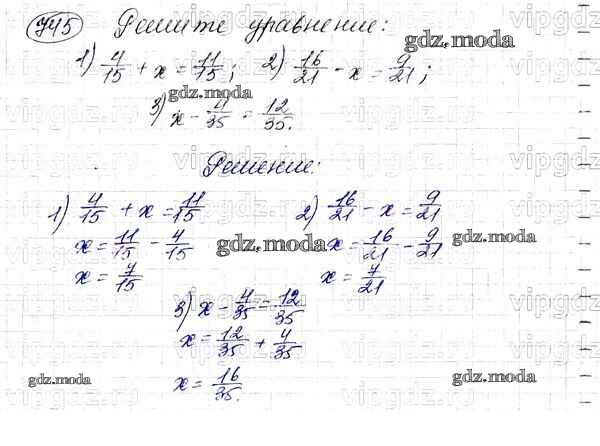 745 Решите уравнение:
1) 4/15 + x = 11/15; 2) 16/21 - x = 9/21;
3) x - 4/35 = 12/35.
Решение:
1) 4/15 + x = 11/15
x = 11/15 - 4/15
x = 7/15
2) 16/21 - x = 9/21
x = 16/21 - 9/21
x = 7/21
3) x - 4/35 = 12/35
x = 12/35 + 4/35
x = 16/35.
gdz.moda
gdz.moda
gdz.moda
gdz.moda
gdz.moda
gdz.moda
vipgdz.ru